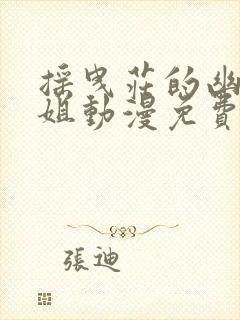 採曳莊的幽
姐動漫免費
張迪